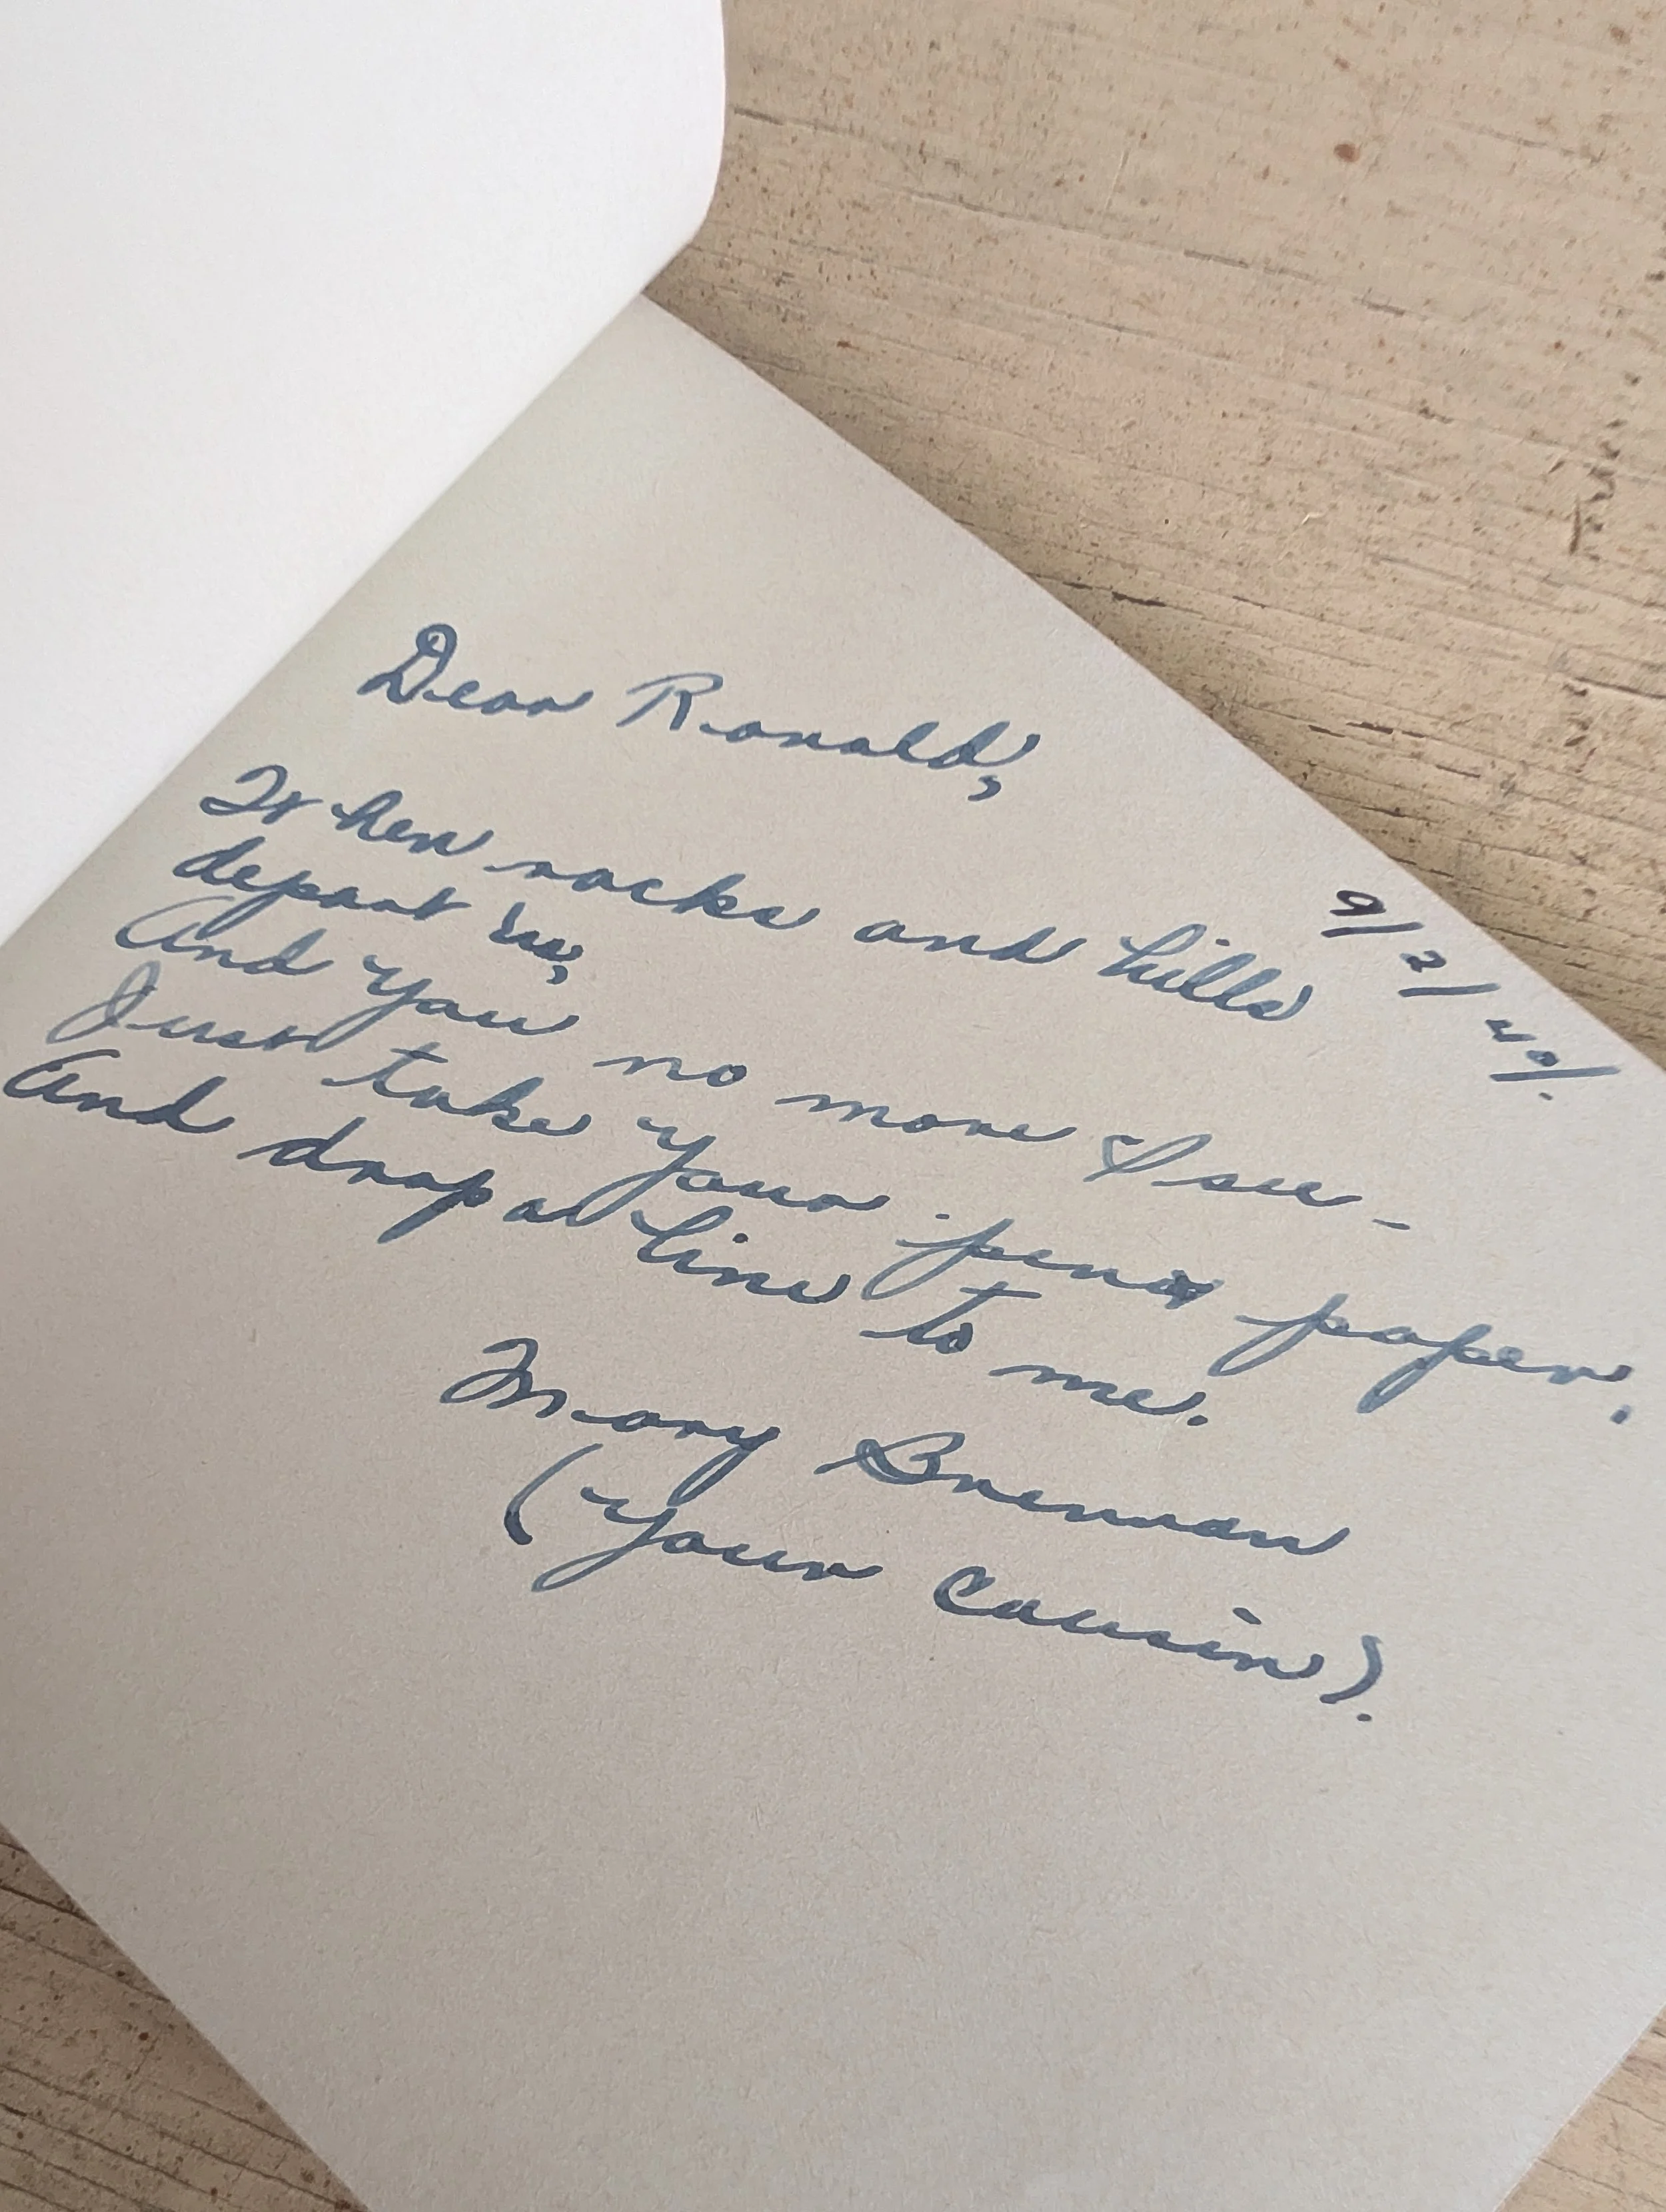 9/2/40/.
Dear Ronald,
When rocks and hills
depart us,
And you no more I see -
Just take your pen & paper.
And drop a line to me.
Mary Brennan
(your cousin).